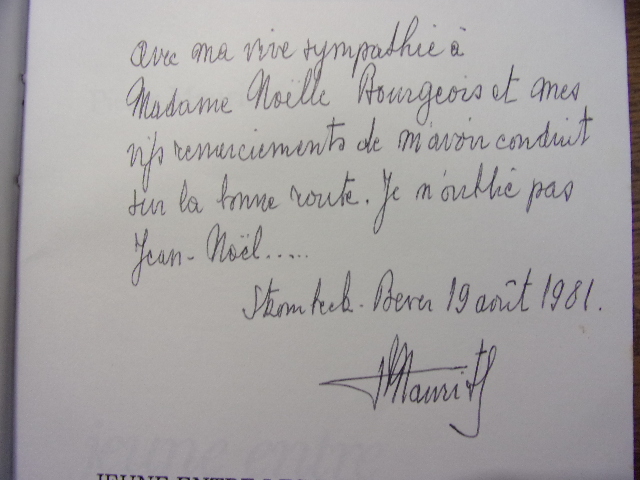 avec ma vive sympathie à
Madame Noëlle Bourgeois et mes
vifs remerciements de m'avoir conduit
sur la bonne route. Je n'oublie pas
Jean-Noël.....
Strombeek-Bever 19 août 1981.
jeune entre
JEUNE ENTRE